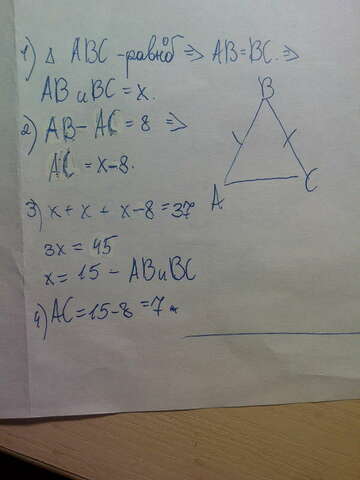 1) Δ ABC - равноб => AB = BC. =>
AB и BC = x.
2) AB - AC = 8 =>
AC = x - 8.
3) x + x + x - 8 = 37
3x = 45
x = 15 - AB и BC
4) AC = 15 - 8 = 7
B
A
C